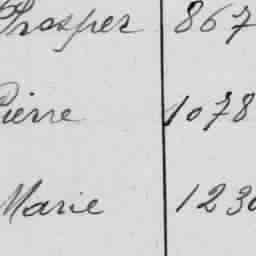 Prosper 867
Pierre 1078
Marie 1230